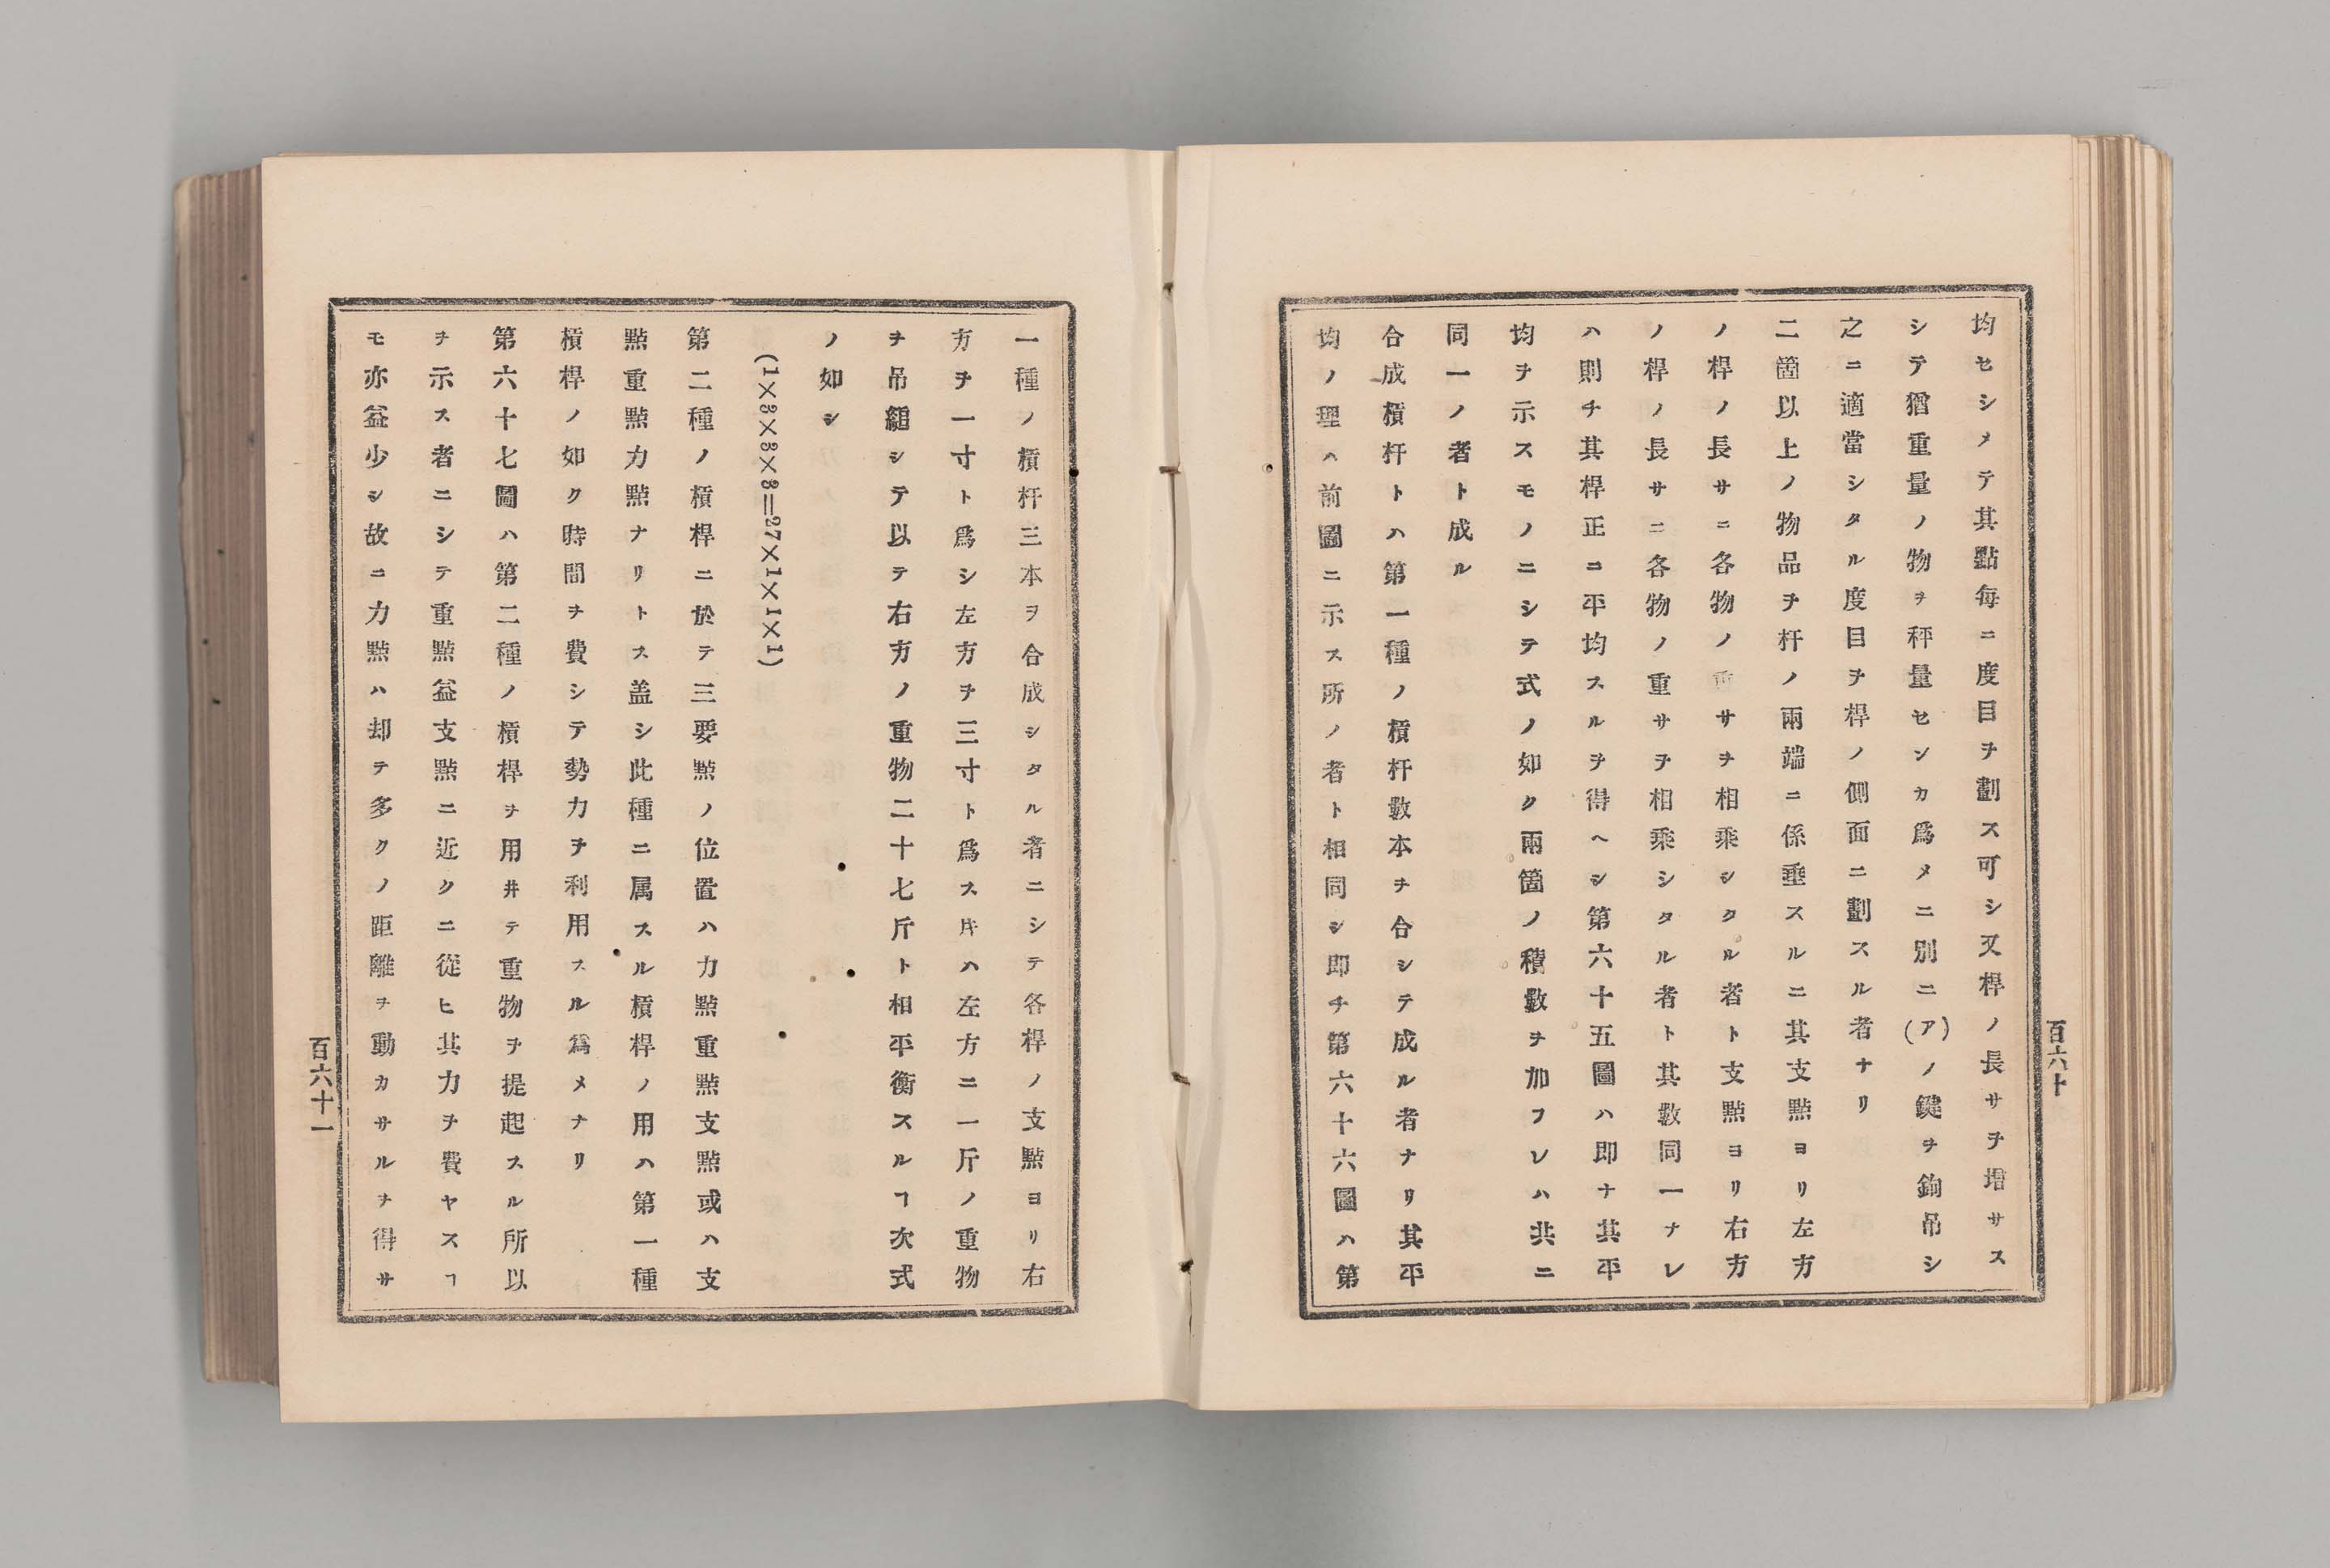 均セシメテ其點每ニ度目ヲ劃ス可シ又桿ノ長サヲ增サス
シテ猶重量ノ物ヲ秤量センカ爲メニ別ニ(ア)ノ鍵ヲ鉤吊シ
之ニ適當シタル度目ヲ桿ノ側面ニ劃スル者ナリ
二箇以上ノ物品ヲ杆ノ兩端ニ係垂スルニ其支點ヨリ左方
ノ桿ノ長サニ各物ノ重サヲ相乘シタル者ト支點ヨリ右方
ノ桿ノ長サニ各物ノ重サヲ相乘シタル者ト其數同一ナレ
ハ則チ其桿正ニ平均スルヲ得ヘシ第六十五圖ハ即ナ其平
均ヲ示スモノニシテ式ノ如ク兩箇ノ積數ヲ加フレハ共ニ
同一ノ者ト成ル
合成槓杆トハ第一種ノ槓杆數本ヲ合シテ成ル者ナリ其平
均ノ理ハ前圖ニ示ス所ノ者ト相同シ即チ第六十六圖ハ第
百六十
一種ノ槓杆三本ヲ合成シタル者ニシテ各桿ノ支點ヨリ右
方ヲ一寸ト爲シ左方ヲ三寸ト爲ス𪜈ハ左方ニ一斤ノ重物
ヲ吊縋シテ以テ右方ノ重物二十七斤ト相平衡スルヿ次式
ノ如シ
(1×3×3×3=27×1×1×1)
第二種ノ槓桿ニ於テ三要點ノ位置ハ力點重點支點或ハ支
點重點力點ナリトス盖シ此種ニ属スル槓桿ノ用ハ第一種
槓桿ノ如ク時間ヲ費シテ勢力ヲ利用スル爲メナリ
第六十七圖ハ第二種ノ槓桿ヲ用井テ重物ヲ提起スル所以
ヲ示ス者ニシテ重點益支點ニ近クニ從ヒ其力ヲ費ヤスヿ
モ亦益少シ故ニ力點ハ却テ多クノ距離ヲ動カサルヲ得サ
百六十一